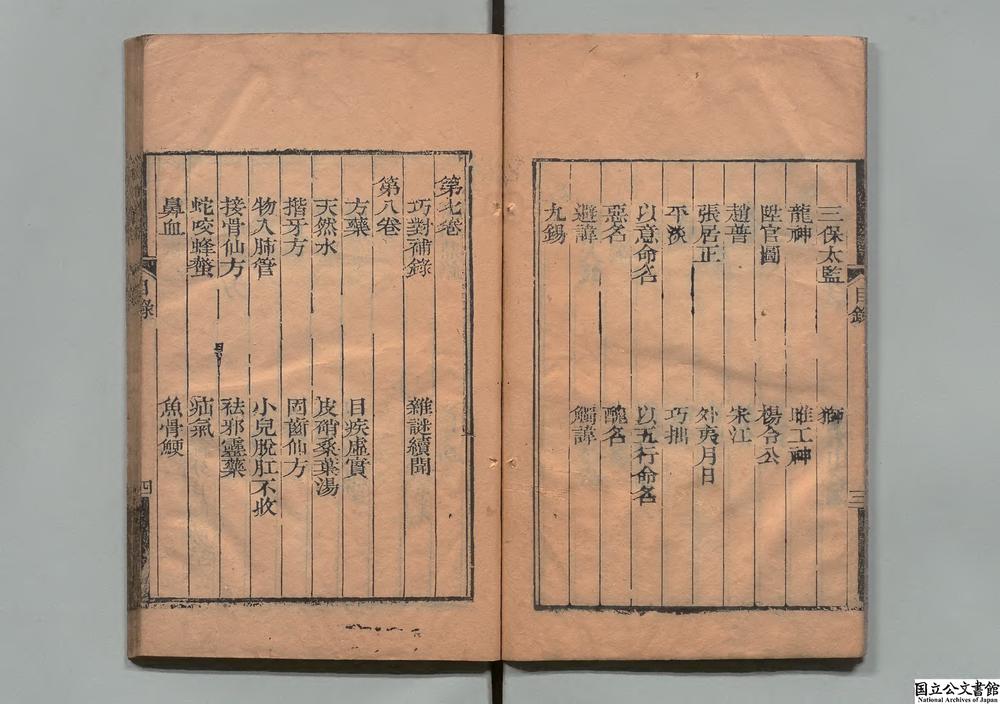 三保太監　獅
龍神　雎工神
陞官圖　楊合公
趙普　宋江
張居正　外夷月日
平淡　巧拙
以意命名　以五行命名
惡名　醜名
避諱　觸諱
九錫
目錄　三
第七卷
巧對補錄　雜謎續聞
第八卷
方藥　目疾虛實
天然水　皮硝桑葉湯
揩牙方　固齒仙方
物入肺管　小兒脫肛不收
接骨仙方　祛邪靈藥
蛇咬蜂螫　疝氣
鼻血　魚骨鯁
目錄　四
国立公文書館
National Archives of Japan